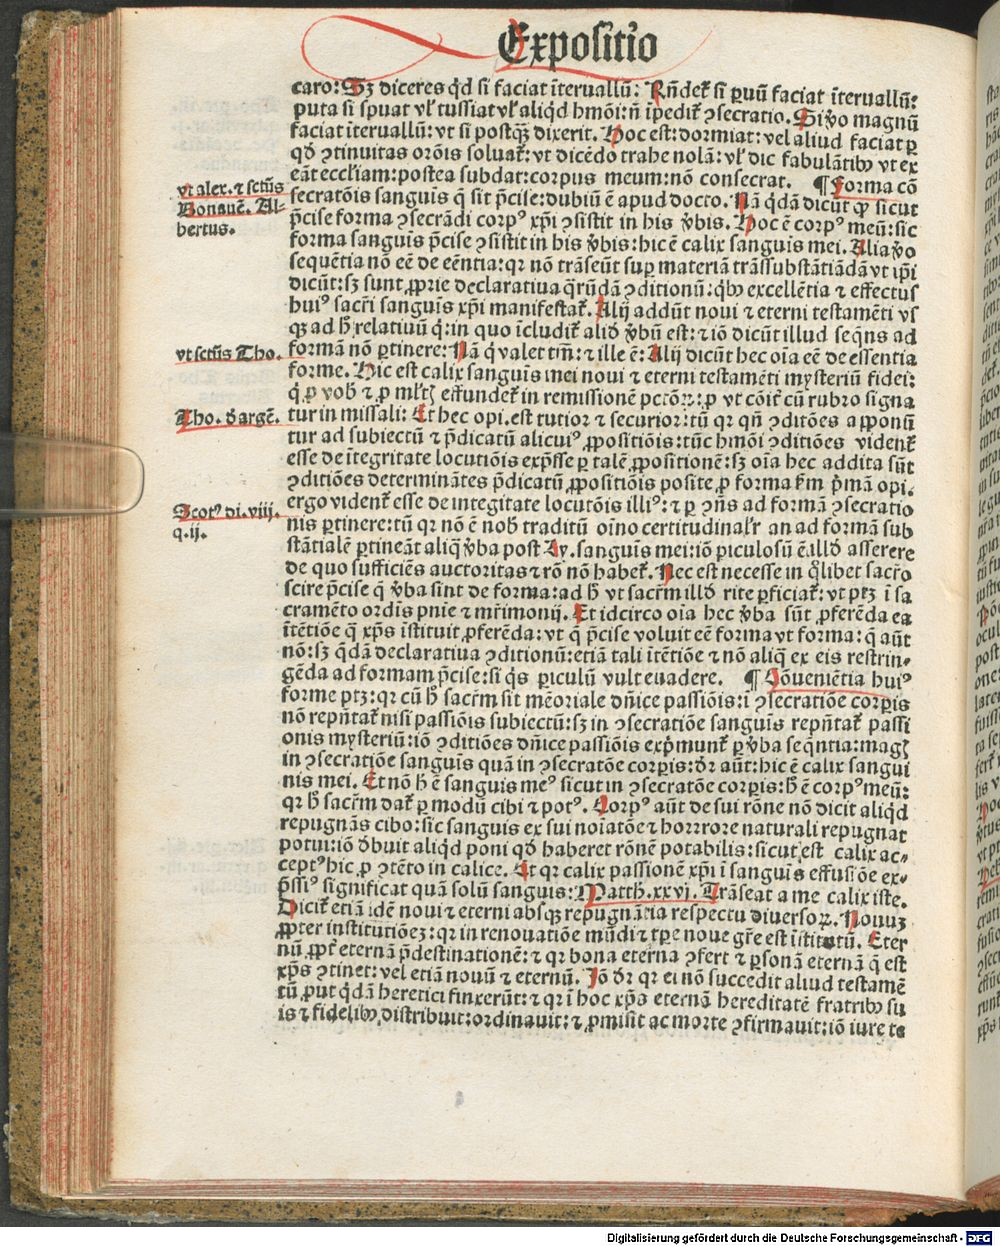 Expositio
caro: Sꝫ diceres ꝙd si faciat īteruallū: Rn̄det̄ si ꝑuū faciat īteruallū:
puta si spuat vl̓ tussiat vl̓ aliqd hmōi: n̄ īpedit̄ ꝯsecratio. Si v̓o magnū
faciat īteruallū: vt si postqꝫ dixerit. Hoc est: dormiat: vel aliud faciat ꝑ
qd̓ ꝯtinuitas orōis soluat̄: vt dicēdo trahe nolā: vl̓ dic fabulātibꝰ vt ex
eāt eccliam: postea subdat: corpus meum: nō consecrat. ¶ Forma cō
vt alex. ⁊ sctūs
Bonauē. Al-
bertus.
secratōis sanguis q̄ sit p̄cise: dubiū ē apud docto. Nā qdā dicūt ꝙ sicut
p̄cise forma ꝯsecrādi corpꝰ xp̄i ꝯsistit in his v̓bis. Hoc ē corpꝰ meū: sic
forma sanguīs p̄cise ꝯsistit in his v̓bis: hic ē calix sanguīs mei. Alia v̓o
sequētia nō eē de eēntia: qꝛ nō trāseūt suꝑ materiā trāssubstātiādā vt ip̄i
dicūt: sꝫ sunt ꝓprie declaratiua qrūdā ꝯditionū: qbꝰ excellētia ⁊ effectus
huiꝰ sacr̄i sanguīs xp̄i manifestat̄. Alij addūt noui ⁊ eterni testamēti vs̄
qꝫ ad h̓ relatiuū q̓: in quo īcludit̄ alid̓ v̓bū est: ⁊ iō dicūt illud seqn̄s ad
vt sctūs Tho.
formā nō ꝑtinere: Nā q̓ valet tm̄: ⁊ ille ē: Alij dicūt hec oīa eē de essentia
forme. Hic est calix sanguīs mei noui ⁊ eterni testamēti mysteriū fidei:
q̓ ꝓ vob̓ ⁊ ꝓ ml̓tꝭ effundet̄ in remissionē pctōꝝ: ꝓ vt cōit̄ cū rubro signa
Tho. d̓ argē.
tur in missali: Et hec opi. est tutior ⁊ securior: tū qꝛ qn̄ ꝯditōes apponū
tur ad subiectū ⁊ p̄dicatū alicuiꝰ ꝓpositiōis: tūc hmōi ꝯditiōes vident̄
esse de ītegritate locutiōis exp̄sse ꝑ talē ꝓpositionē: sꝫ oīa hec addita sūt
ꝯditiōes determinātes p̄dicatū ꝓpositiōis posite ꝓ forma km̄ p̄mā opi.
Scotꝰ di. viij.
q. ij.
ergo vident̄ esse de integritate locutōis illiꝰ: ⁊ ꝑ ꝯn̄s ad formā ꝯsecratio
nis ꝑtinere: tū qꝛ nō ē nob̓ traditū oīno certitudinal̓r an ad formā sub
stātialē ꝑtineāt aliq̄ v̓ba post Ly. sanguīs mei: iō ꝑiculosū ē illd̓ asserere
de quo sufficiēs auctoritas ⁊ rō nō habet̄. Nec est necesse in q̓libet sacr̄o
scire p̄cise q̄ v̓ba sint de forma: ad h̓ vt sacr̄m illd̓ rite ꝑficiat̄: vt ptꝫ ī sa
cramēto ordīs pnīe ⁊ mr̄imonij. Et idcirco oīa hec v̓ba sūt ꝓferēda ea
ītētiōe q̄ xp̄s īstituit ꝓferēda: vt q̄ p̄cise voluit eē forma vt forma: q̄ aūt
nō: sꝫ qdā declaratiua ꝯditionū: etiā tali ītētiōe ⁊ nō aliq̄ ex eis restrin-
gēda ad formam p̄cise: si q̄s ꝑiculū vult euadere. ¶ Cōueniētia huiꝰ
forme ptꝫ: qꝛ cū h̓ sacr̄m sit mēoriale dn̄ice passiōis: ī ꝯsecratiōe corꝑis
nō repn̄tat̄ nisi passiōis subiectū: sꝫ in ꝯsecratiōe sanguīs repn̄tat̄ passi
onis mysteriū: iō ꝯditiōes dn̄ice passiōis exp̄munt̄ ꝑ v̓ba seqn̄tia: magꝭ
in ꝯsecratiōe sanguīs quā in ꝯsecratōe corꝑis: d̓r aūt: hic ē calix sangui
nis mei. Et nō h̓ ē sanguis meꝰ sicut in ꝯsecratōe corꝑis: h̓ ē corpꝰ meū:
qꝛ h̓ sacr̄m dat̄ ꝑ modū cibi ⁊ potꝰ. Corpꝰ aūt de sui rōne nō dicit aliqd
repugnās cibo: sic sanguis ex sui noīatōe ⁊ horrrore naturali repugnat
potui: iō d̓buit aliqd poni qd̓ haberet rōnē potabilis: sicut est calix ac-
ceptꝰ hic ꝓ ꝯtēto in calice. Et qꝛ calix passionē xp̄i ī sanguīs effusiōe ex-
p̄ssiꝰ significat quā solū sanguis: Matth. xxvj. Trāseat a me calix iste.
Dicit̄ etiā idē noui ⁊ eterni absqꝫ repugnātia respectu diuersoꝝ. Nouuꝫ
ꝓpter institutiōeꝫ: qꝛ in renouatiōe mūdi ⁊ tꝑe noue gr̄e est īstitutū. Eter
nū ꝓpt̄ eternā p̄destinationē: ⁊ qꝛ bona eterna ꝯfert ⁊ ꝑsonā eternā q̄ est
xp̄s ꝯtinet: vel etiā nouū ⁊ eternū. Iō d̓r qꝛ ei nō succedit aliud testamē
tū ꝓut qdā heretici finxerūt: ⁊ qꝛ ī hoc xp̄s eternā hereditatē fratribꝰ su
is ⁊ fidelibꝰ distribuit: ordinauit: ⁊ ꝓmisit ac morte ꝯfirmauit: iō iure te
Digitalisierung gefördert durch die Deutsche Forschungsgemeinschaft - DFG